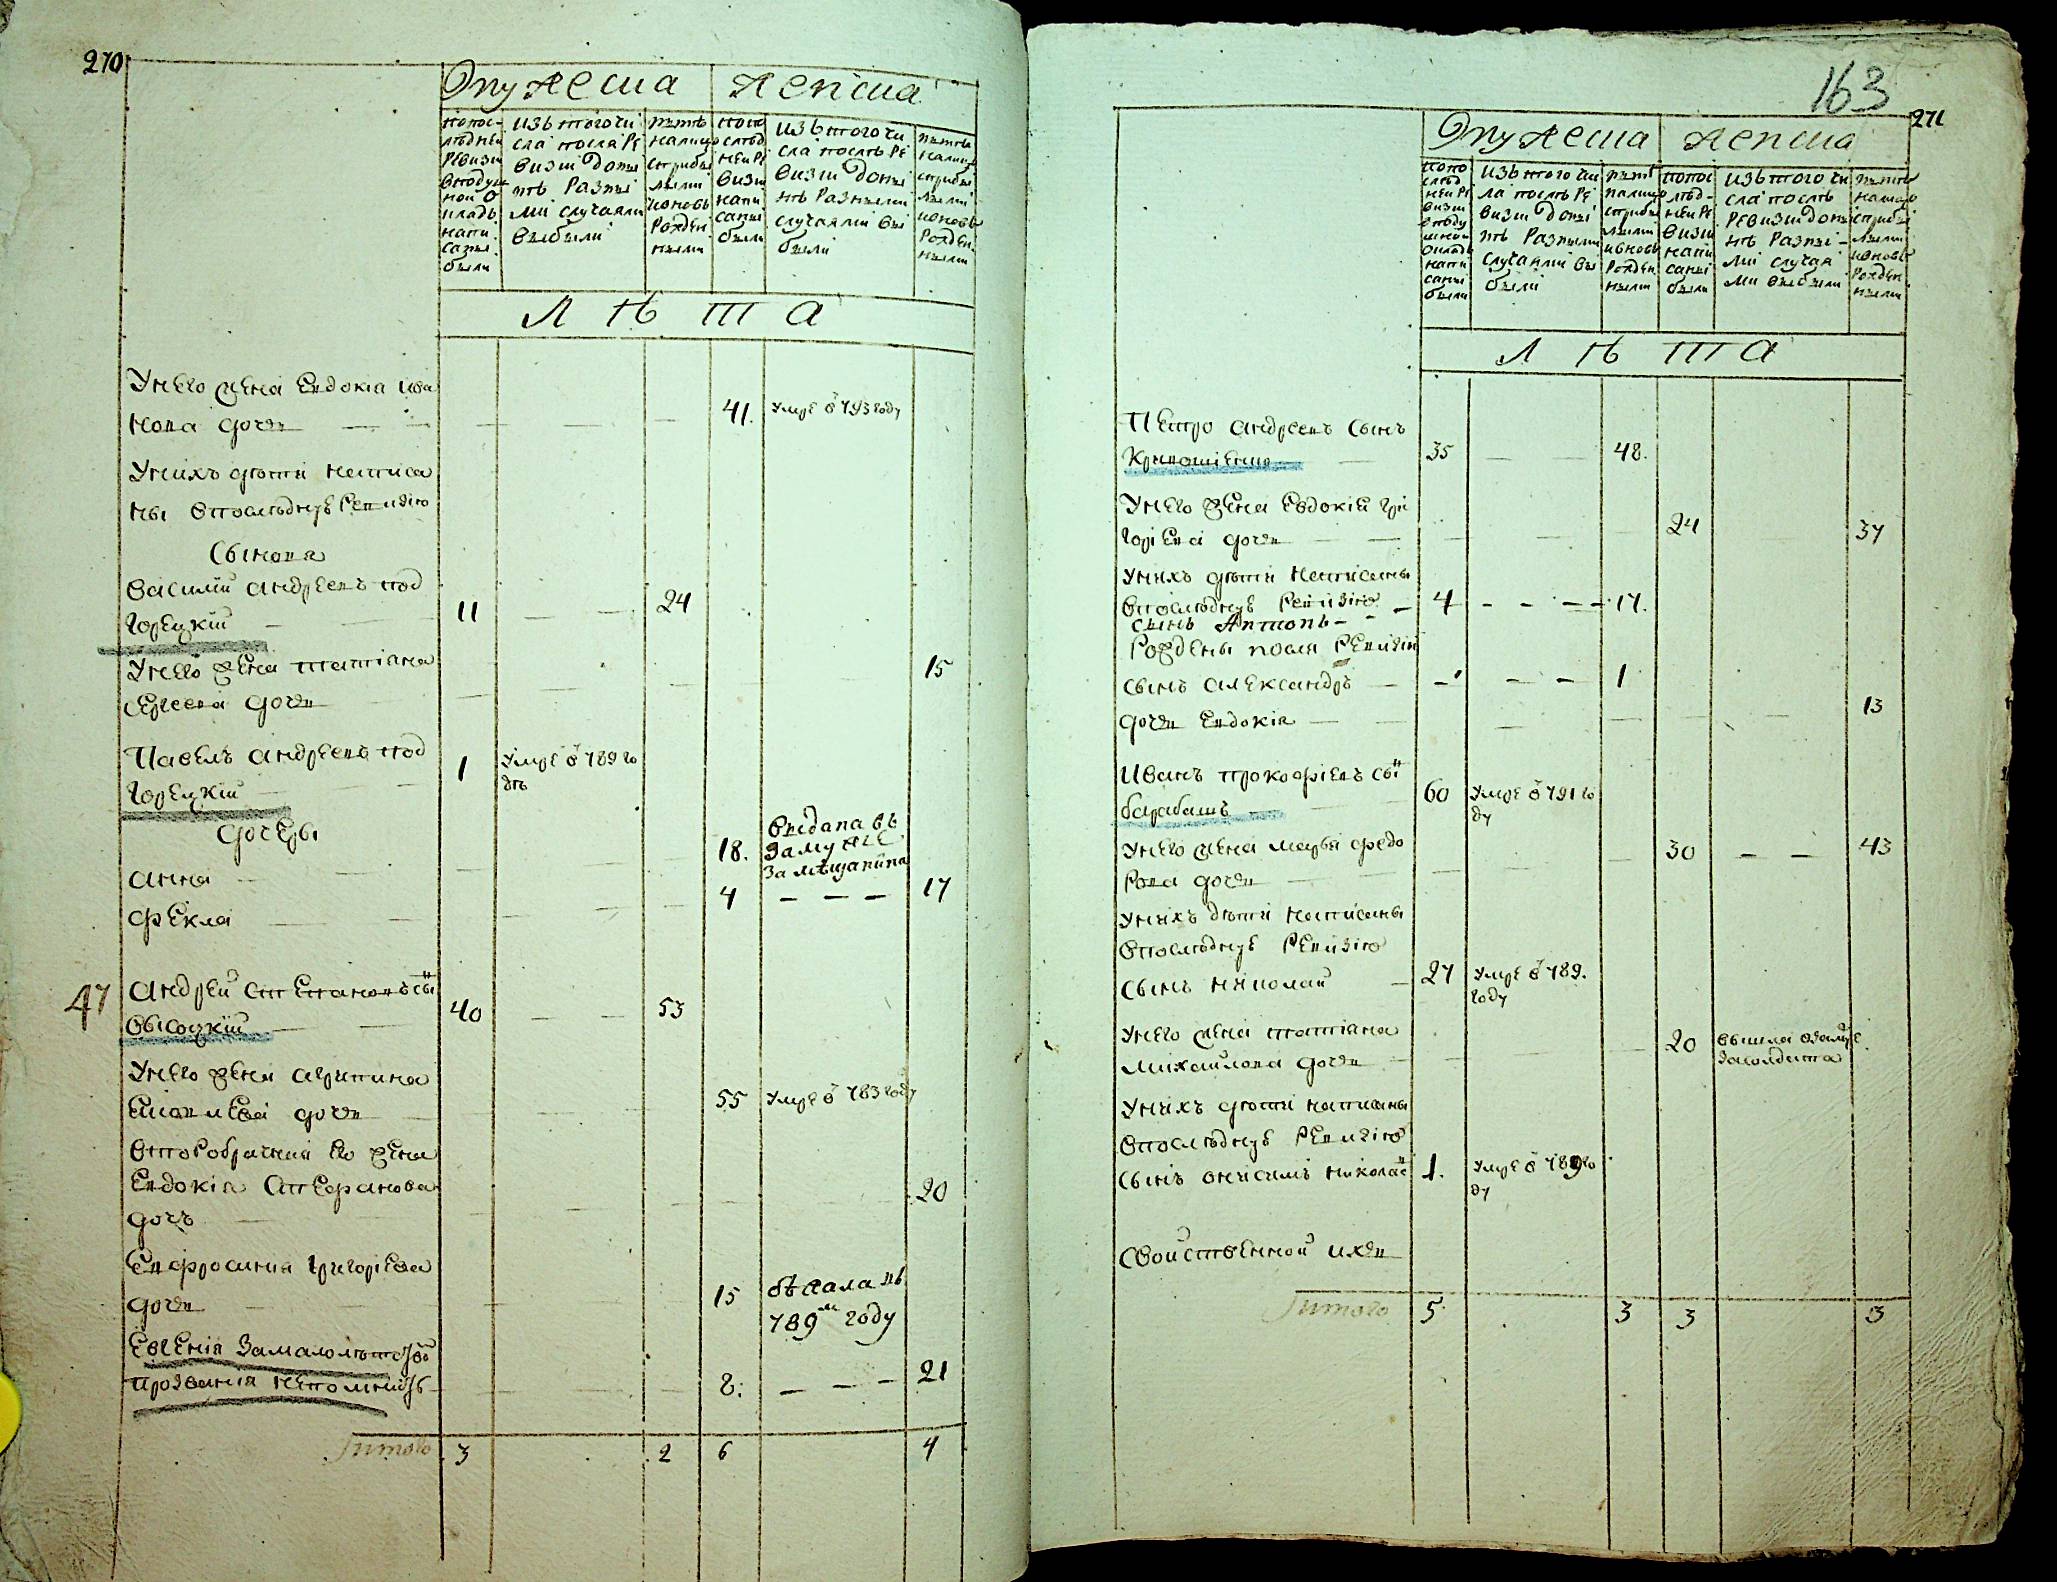 270
О мужеска
женска
по пос-
лѣдней
ревизіи
в подуш
ной о
кладъ
напи
саны
были
изъ того чи
сла посля ре
визіи до ны
нѣ разны
ми случаями
выбыли
нынѣ
налицо
с прибы
лыми
и новь
рожден
ными
по по
слѣд
ней ре
визіи
напи
саны
были
изъ того чи
сла послѣ ре
визіи до ны
нѣ разными
случаями вы
были
нынѣ
налицо
с прибы
лыми
и новь
рожден
ными
Л Ѣ Т А
У него жена Евдокіа Ива
нова дочь 41. умре в 793 году
У них дѣти написа
ны в последнуе ревизию
Сынова
Василий Андреевъ под
горецкій 11 24
У него жена Татіана
Сергеева дочь 15
Павелъ Андреевъ под
горецкій 1 умре в 789 го
дѣ
дочеры
Анна 18. выдана въ
замуже
за мѣщанина
Фекла 4 17
47 Андрей Степановъ сы
высоцкій 40 53
У него жена Агрипина
дочь 55 умре в 783 году
Второбрачная ево жена
Евдокіа Стефанова
дочъ 20
Евфросиния Григориева
дочь 15 бѣжала въ
789м году
Евгения за малолѣтст
прозвания непомнит 8. 21
Итого 3 2 6 4
163
271
О мужеска
женска
по по
слѣд
ней ре
визіи
в поду
шной
окладъ
напи
саны
были
изъ того чи
ла послѣ ре
визіи до ны
нѣ разными
случаями вы
были
нынѣ
налицо
с прибы
лыми
и новь
рожден
ными
по пос
лѣд-
ней ре
визіи
напи
саны
были
изъ того чи
сла послѣ
ревизіи до ны
нѣ разны-
ми случая
ми выбыли
нынѣ
налицо
с прибы
лыми
и новь
рожден
ными
Л Ѣ Т А
Петро Андреевъ сынъ
Кривошіенко 35 48.
У него жена Евдокия Гри
гориева дочь 24 37
У них дѣти написаны
в последнуе ревизию 4 17.
сынъ Антонъ
Рождены посля ревизии
сынъ Александръ 1
дочь Евдокіа 13
Иванъ Прокофіевъ сы
барабашъ 60 умре в 791 го
ду
У него жена Марья Федо
рова дочь 30 43
У них дѣти написаны
в последнуе ревизию
сынъ Николай 27 умре в 789.
году
У него жена Татіана
Михайлова дочь 20 вышла в замуже
за солдата
У них дѣти написаны
в последнуе ревизию
сынъ Онисимъ Николае 1. умре в 789 го
ду
Свойственной ихъ
Итого 5 3 3 3